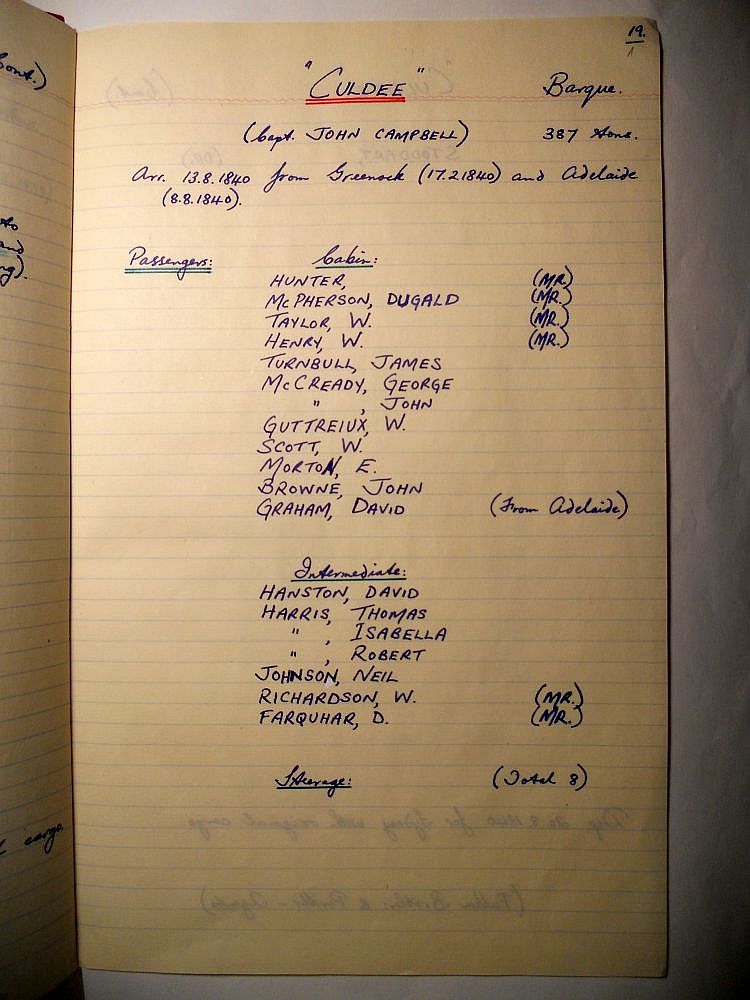 19.
"CULDEE" Barque.
(Capt. JOHN CAMPBELL) 387 tons.
Arr. 13.8.1840 from Greenock (17.2.1840) and Adelaide
(8.8.1840).
Passengers: Cabin:
HUNTER, (MR.)
McPHERSON, DUGALD (MR.)
TAYLOR, W. (MR.)
HENRY, W. (MR.)
TURNBULL, JAMES
McCREADY, GEORGE
" , JOHN
GUTTREIUX, W.
SCOTT, W.
MORTON, E.
BROWNE, JOHN
GRAHAM, DAVID (From Adelaide)
Intermediate:
HANSTON, DAVID
HARRIS, THOMAS
" , ISABELLA
" , ROBERT
JOHNSON, NEIL
RICHARDSON, W. (MR.)
FARQUHAR, D. (MR.)
Steerage: (Total 8)
cont.)
to
and
g).
cargo.